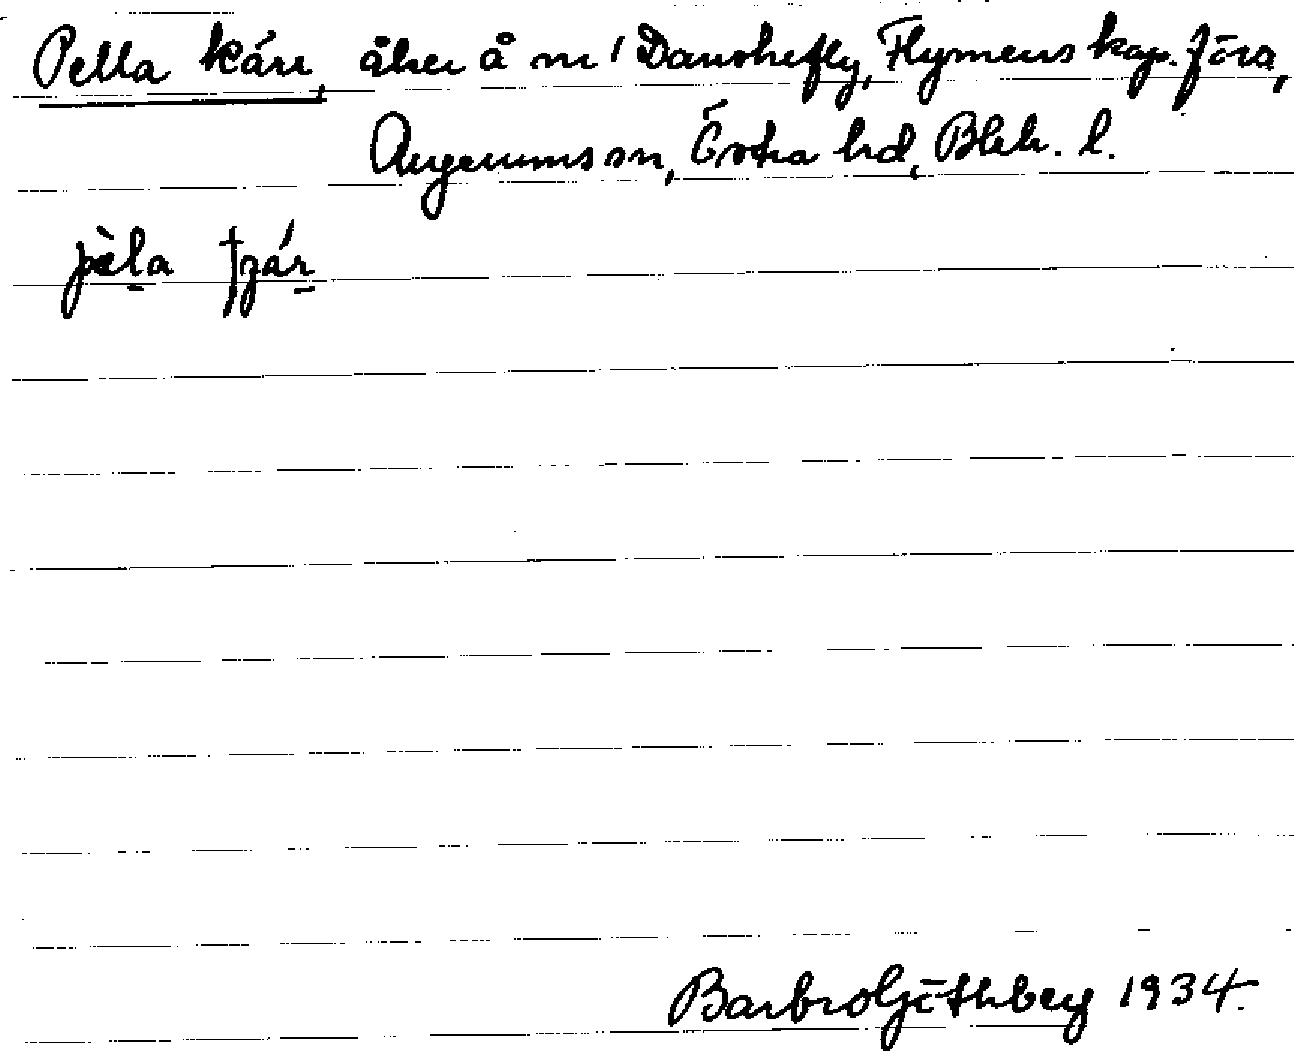 Pella kärr, åker å nr 1 Danskefly, Flymens kap. förs,
Augerums sn, Östra hd, Blek. l.
pèla
Barbro Götberg 1934.